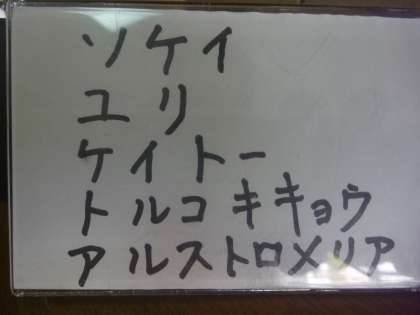 ソケイ
ユリ
ケイトー
トルコキキョウ
アルストロメリア